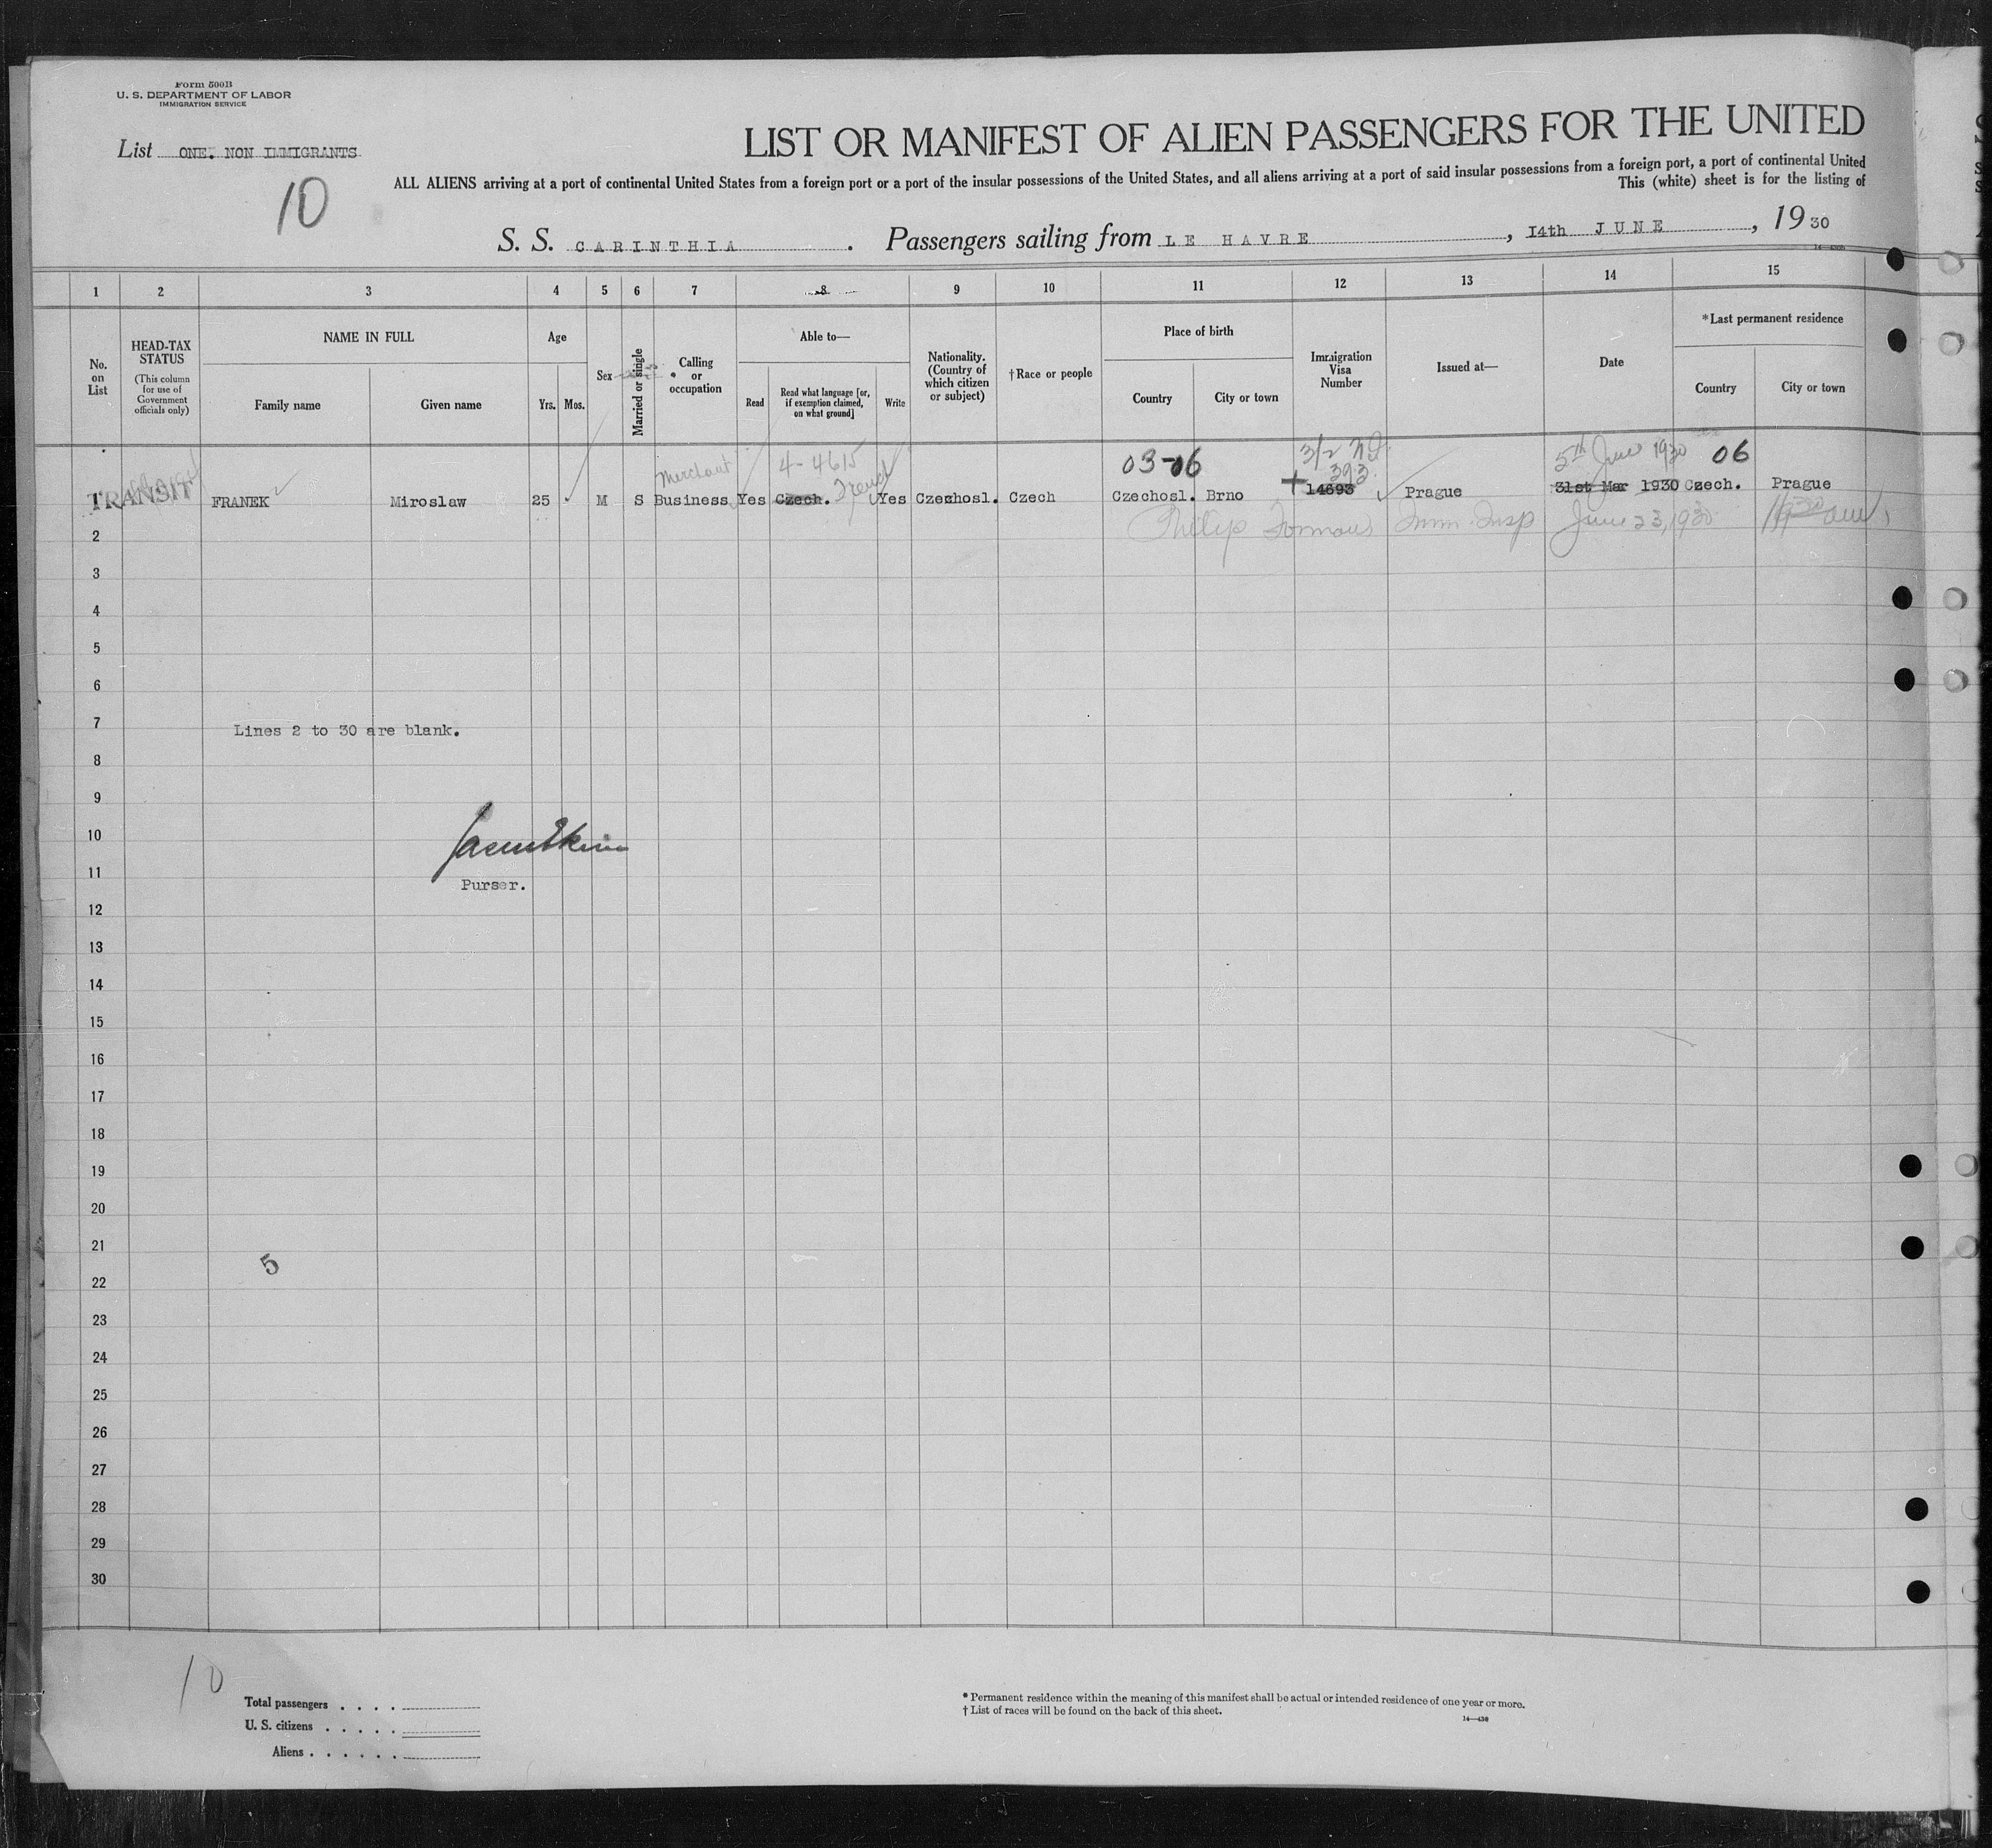 Form 500B
U. S. DEPARTMENT OF LABOR
IMMIGRATION SERVICE
List ONE. NON IMMIGRANTS
10
LIST OR MANIFEST OF ALIEN PASSENGERS FOR THE UNITED
ALL ALIENS arriving at a port of continental United States from a foreign port or a port of the insular possessions of the United States, and all aliens arriving at a port of said insular possessions from a foreign port, a port of continental United
This (white) sheet is for the listing of
S. S. CARINTHIA. Passengers sailing from LE HAVRE, I4th JUNE, 1930
1 2 3 4 5 6 7 8 9 10 11 12 13 14 15
No. on List
HEAD-TAX STATUS
(This column for use of Government officials only)
NAME IN FULL
Family name
Given name
Age
Yrs. Mos.
Sex
Married or single
Calling or occupation
Able to—
Read
Read what language [or, if exemption claimed, on what ground]
Write
Nationality. (Country of which citizen or subject)
†Race or people
Place of birth
Country
City or town
Immigration Visa Number
Issued at—
Date
*Last permanent residence
Country
City or town
Merchant 4-4615 03-06 3/2 393 5th June 1930 06
1 TRANSIT FRANEK Miroslaw 25 M S Business Yes Czech. French Yes Czechosl. Czech Czechosl. Brno 14693 Prague 31st Mar 1930 Czech. Prague
2 Philip Imm. Insp June 23, 1930
3
4
5
6
7 Lines 2 to 30 are blank.
8
9
10
11 Purser.
12
13
14
15
16
17
18
19
20
21
5
22
23
24
25
26
27
28
29
30
10
Total passengers . . . .
U. S. citizens . . . . .
Aliens . . . . . .
* Permanent residence within the meaning of this manifest shall be actual or intended residence of one year or more.
† List of races will be found on the back of this sheet.
14—430